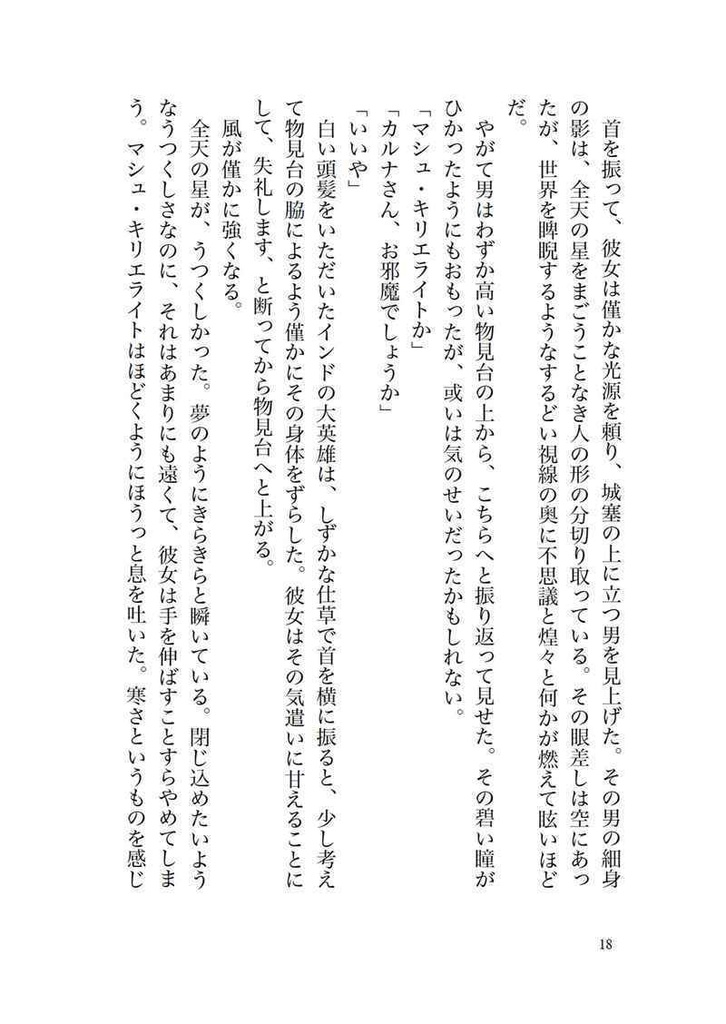 首を振って、彼女は僅かな光源を頼り、城塞の上に立つ男を見上げた。その男の細身
の影は、全天の星をまごうことなき人の形の分切り取っている。その眼差しは空にあっ
たが、世界を睥睨するようなするどい視線の奥に不思議と煌々と何かが燃えて眩いほど
だ。
やがて男はわずか高い物見台の上から、こちらへと振り返って見せた。その碧い瞳が
ひかったようにもおもったが、或いは気のせいだったかもしれない。
「マシュ・キリエライトか」
「カルナさん、お邪魔でしょうか」
「いいや」
白い頭髪をいただいたインドの大英雄は、しずかな仕草で首を横に振ると、少し考え
て物見台の脇によるよう僅かにその身体をずらした。彼女はその気遣いに甘えることに
して、失礼します、と断ってから物見台へと上がる。
風が僅かに強くなる。
全天の星が、うつくしかった。夢のようにきらきらと瞬いている。閉じ込めたいよう
なうつくしさなのに、それはあまりにも遠くて、彼女は手を伸ばすことすらやめてしま
う。マシュ・キリエライトはほどくようにほうっと息を吐いた。寒さというものを感じ
18